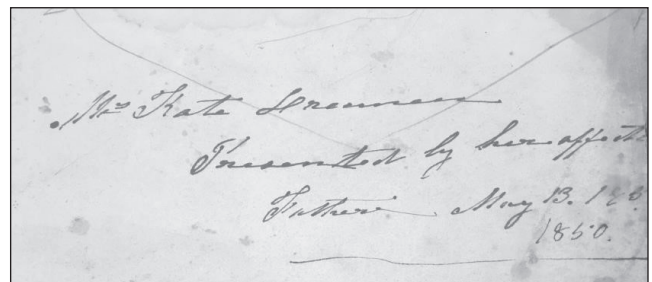 Mrs Kate Drennen
Presented by her affect
Father. May 13. 185
1850.